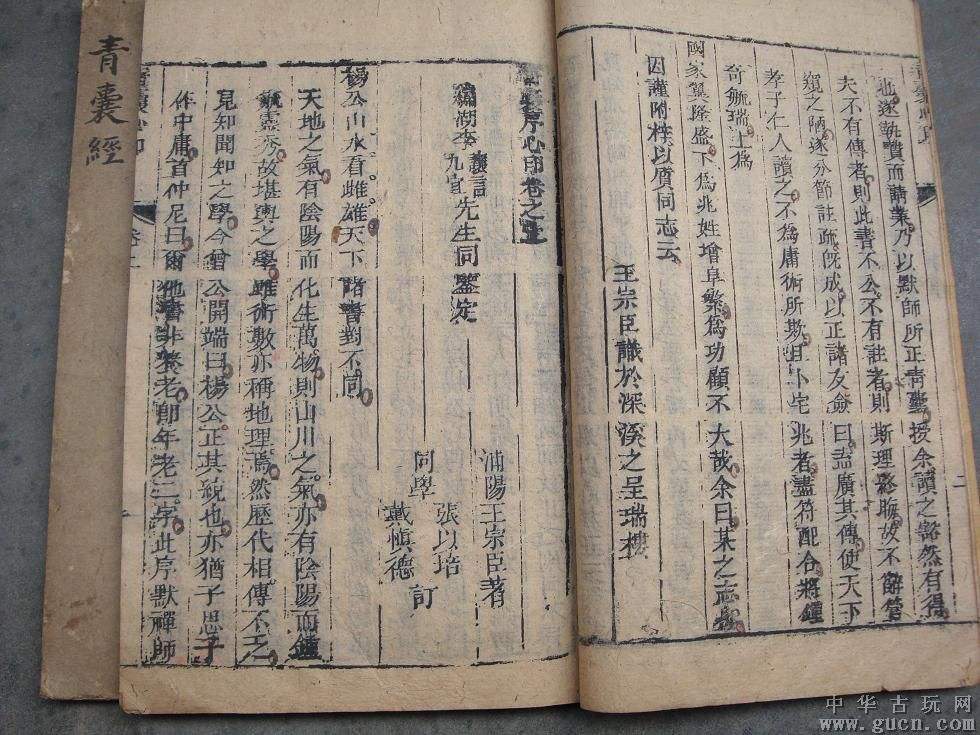 也遂執贄而請業乃以默師所正青囊授余讀之豁然有得
夫不有傳者則此書不公不有註者則斯理終晦故不辭管
窺之陋遂分節註疏既成以正諸友僉曰盍廣其傳使天下
孝子仁人讀之不為庸術所欺且卜宅兆者盡符配合將鍾
奇毓瑞上為
國家翼隆盛下為兆姓增阜繁為功顧不大哉余曰某之志也
因謹附梓以質同志云
王宗臣識於深溪之呈瑞樓
序心印卷之上
湖李九宜先生同鑒定
浦陽王宗臣著
同學張以培戴慎德訂
楊公山水看雌雄天下諸書對不同
天地之氣有陰陽而化生萬物則山川之氣亦有陰陽而鍾
毓靈秀故堪輿之學雖術數亦稱地理焉然歷代相傳不乏
見知聞知之學今曾公開端曰楊公正其統也亦猶子思子
作中庸首仲尼曰爾他書非養老卽年老二字此序默禪師
青囊經
中华古玩网
www.gucn.com